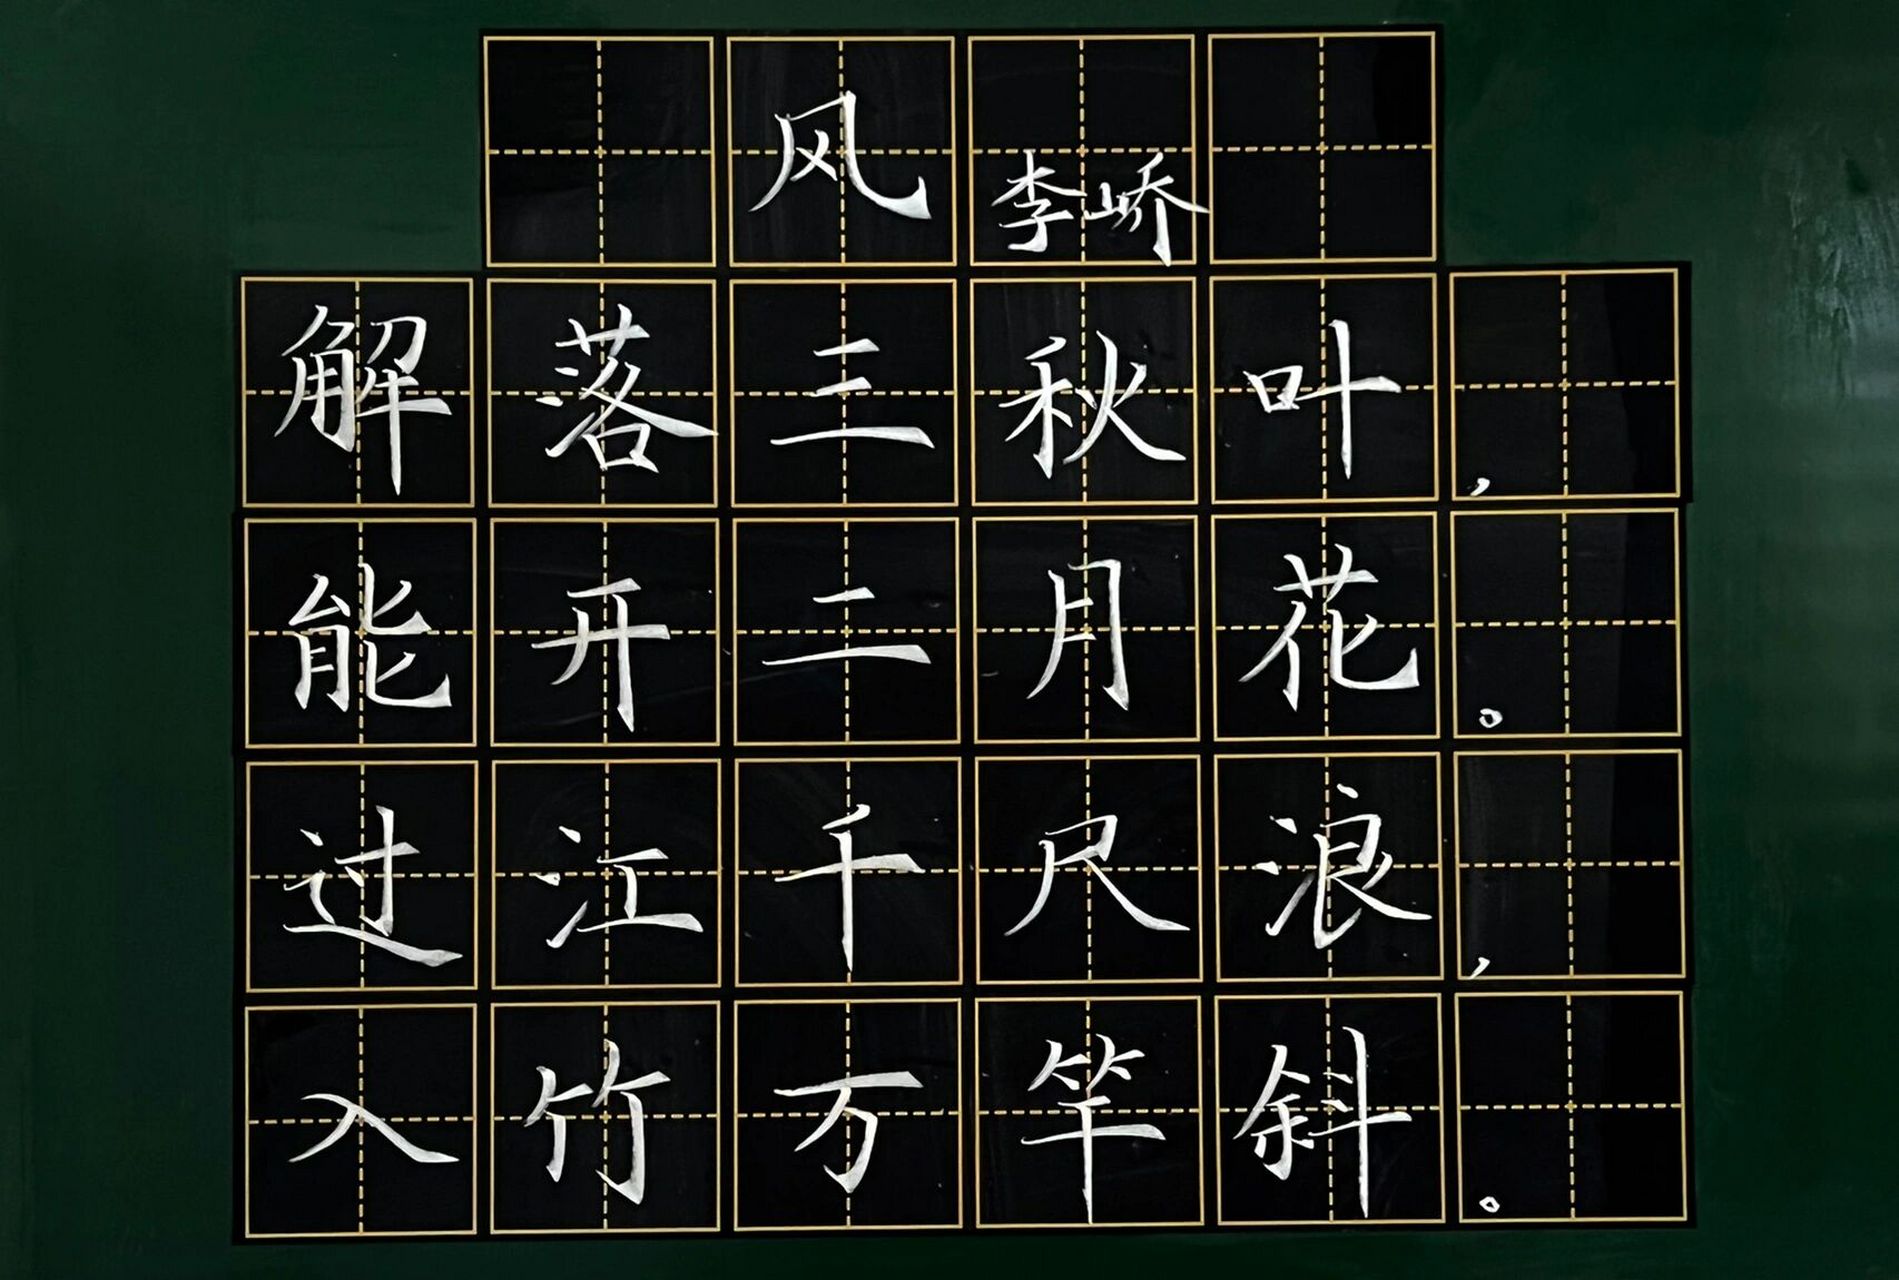 风 李峤
解落三秋叶，
能开二月花。
过江千尺浪，
入竹万竿斜。